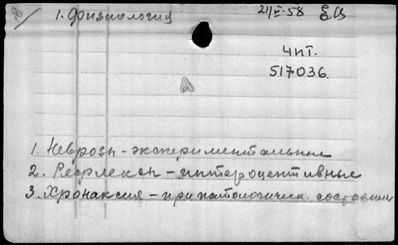 1. Физиология 21/II-58
Чит.
517036.
1. Неврозы - экспериментальные
2. Рефлексы - интероцептивные
3. Хронаксия - при патологическ. состоянии